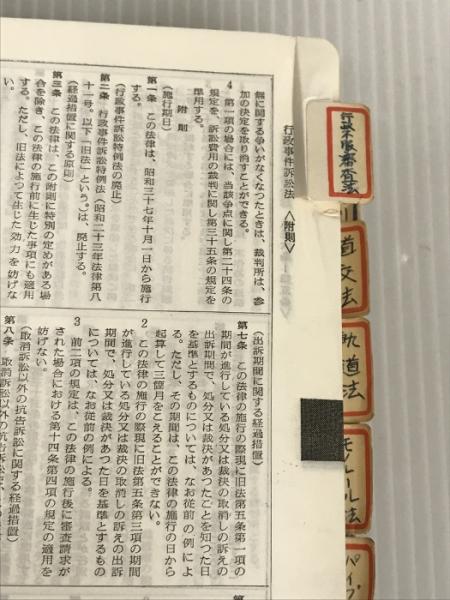 行政事件訴訟法 〈附則〉
無に関する争いがなくなつたときは、裁判所は、参
加の決定を取り消すことができる。
4 第一項の場合には、当該争点に関し第二十四条の
規定を、訴訟費用の裁判に関し第三十五条の規定を
準用する。
附則
(施行期日)
第一条 この法律は、昭和三十七年十月一日から施行
する。
(行政事件訴訟特例法の廃止)
第二条 行政事件訴訟特例法(昭和二十三年法律第八
十一号。以下「旧法」という。)は、廃止する。
(経過措置に関する原則)
第三条 この法律は、この附則に特別の定めがある場
合を除き、この法律の施行前に生じた事項にも適用
する。ただし、旧法によつて生じた効力を妨げな
い。
(出訴期間に関する経過措置)
第七条 この法律の施行の際現に旧法第五条第一項の
期間が進行している処分又は裁決の取消しの訴えの
出訴期間で、処分又は裁決があつたことを知つた日
を基準とするものについては、なお従前の例によ
る。ただし、その期間は、この法律の施行の日から
起算して三箇月をこえることができない。
2 この法律の施行の際現に旧法第五条第三項の期間
が進行している処分又は裁決の取消しの訴えの出訴
期間で、処分又は裁決があつた日を基準とするもの
については、なお従前の例による。
3 前二項の規定は、この法律の施行後に審査請求が
された場合における第十四条第四項の規定の適用を
妨げない。
(取消訴訟以外の抗告訴訟に関する経過措置)
第八条 取消訴訟以外の抗告訴訟
行政不服審査法
道交法
軌道法
モノレール法
パイプ